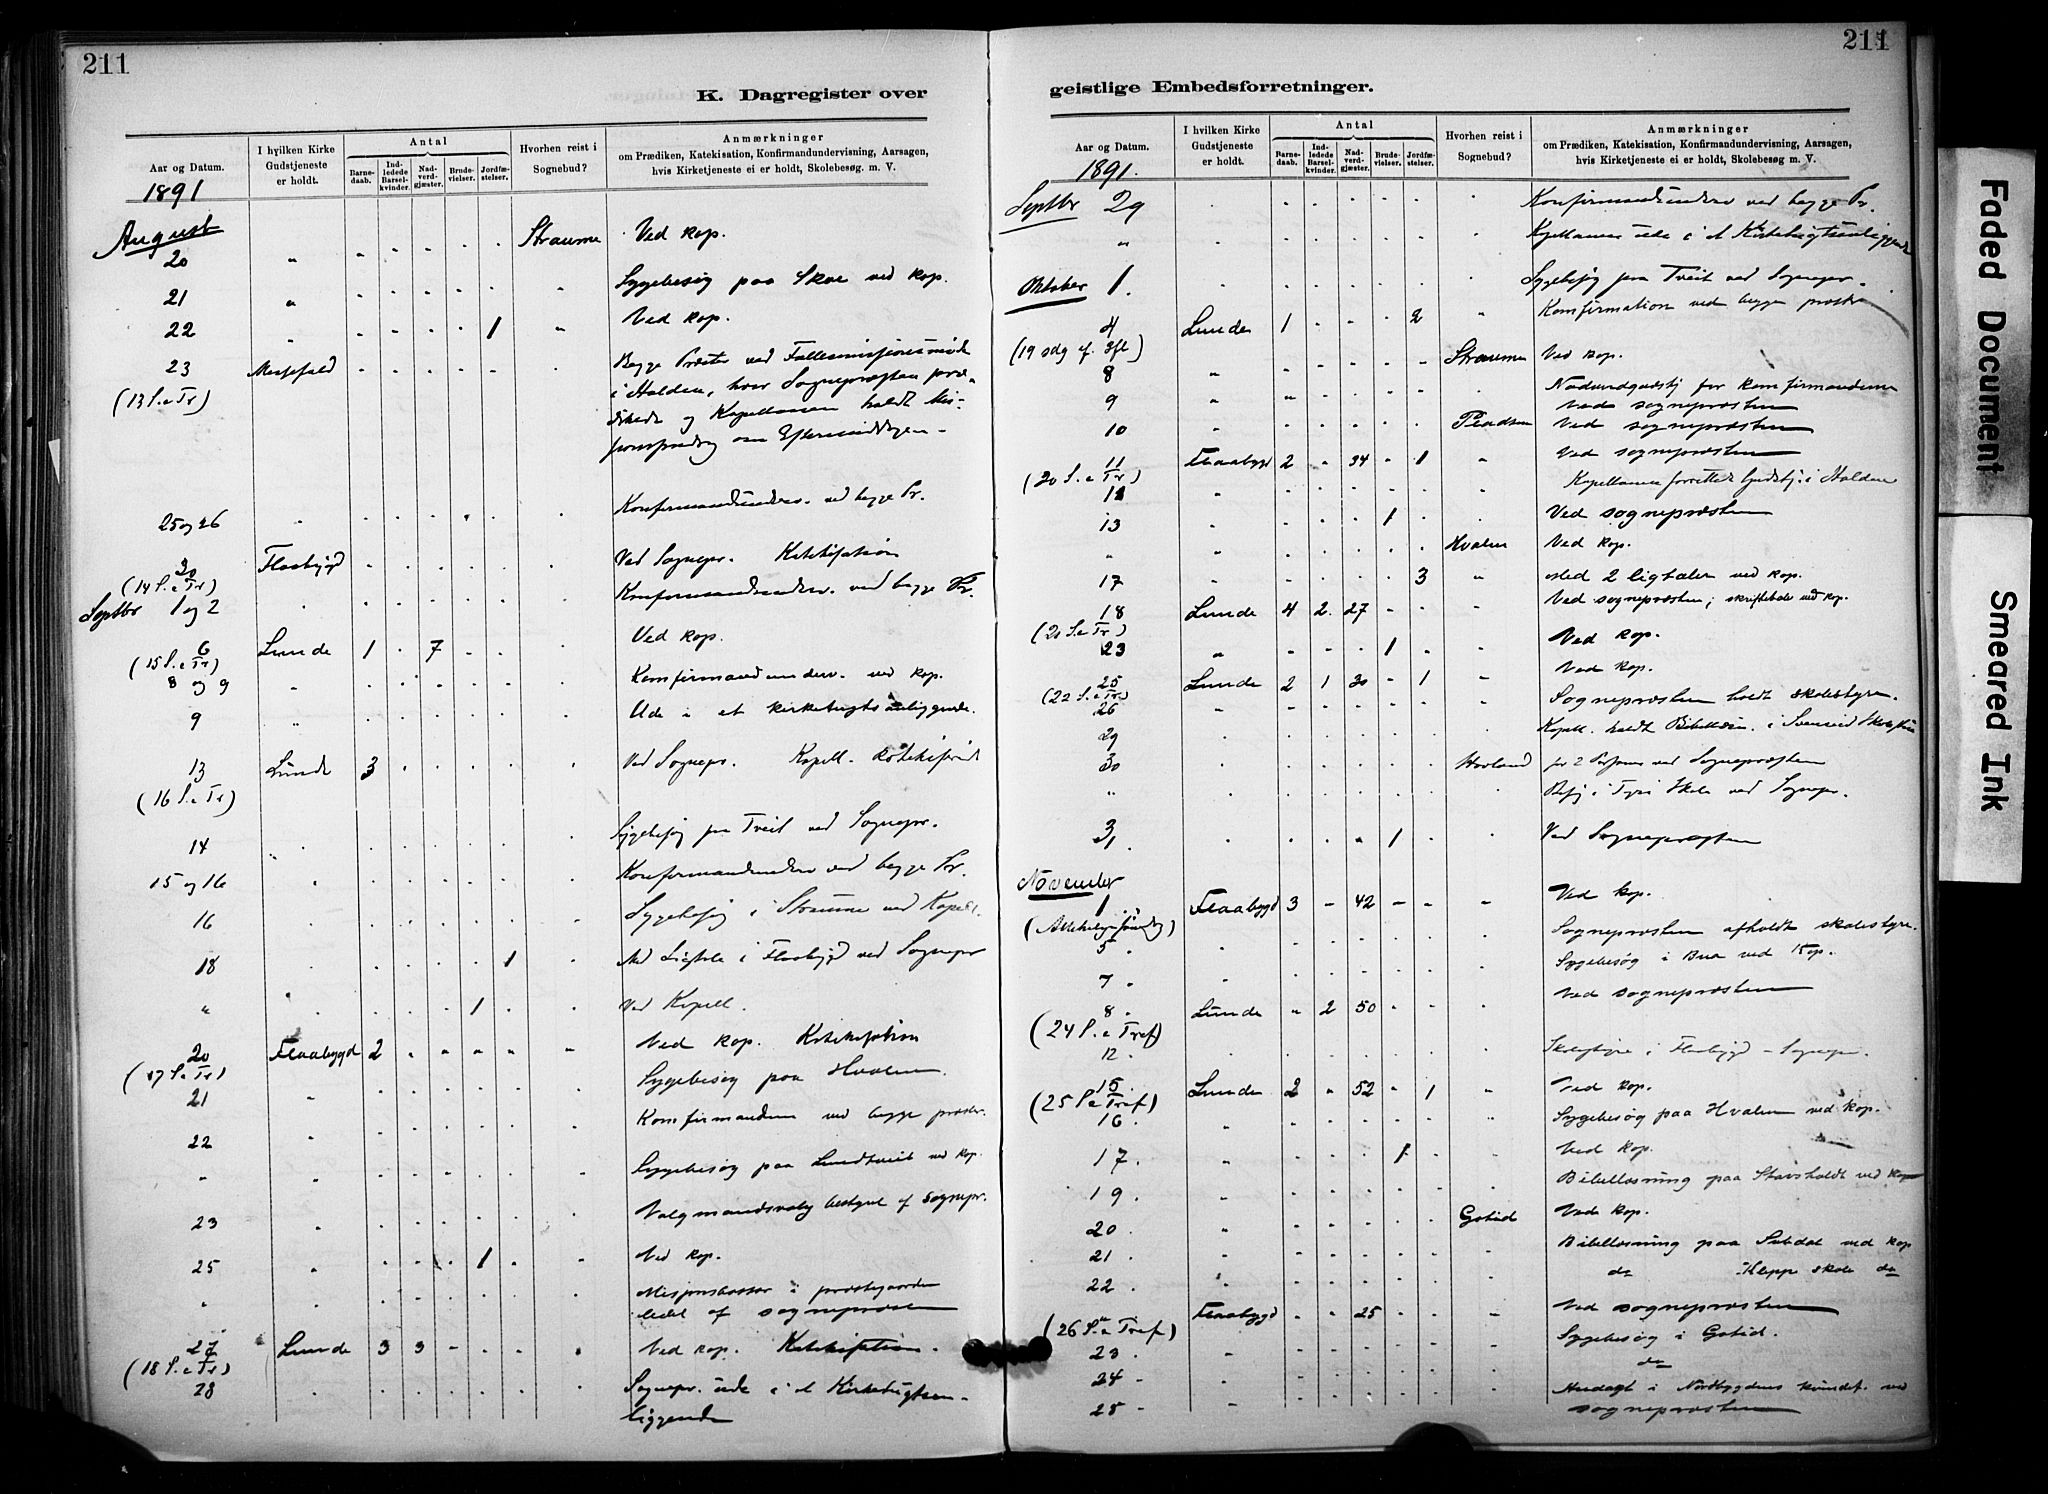 211
K. Dagregister over
Aar og Datum.
I hvilken Kirke Gudstjeneste er holdt.
Antal
Barnedaab.
Indledede Barselkvinder.
Nadverdgjæster.
Brudevielser.
Jordfæstelser.
Hvorhen reist i Sognebud?
Anmærkninger
om Prædiken, Katekisation, Konfirmandundervisning, Aarsagen, hvis Kirketjeneste ei er holdt, Skolebesøg m. V.
1891
August
20 " Straume Ved kap.
21 " Sygebesøg paa Skoe ved kap.
22 1 " Ved kap.
23 Messefald Begge Præster ved Fællesmissionsmøde
(13 S. e Tr) i Holden, hvor Sognepræsten præ-
dikede og Kapellanen holdt Mis-
om Eftermiddagen
25 og 26 Konfirmandunderv. ved begge Pr.
30 Flaabygd Ved Sognepr. Katekisation
(14 S. e Tr)
Septbr 1 og 2 Konfirmandunderv. ved begge Pr.
6 Lunde 1 7 Ved kap.
(15 S. e Tr)
8 og 9 Konfirmandunderv. ved kap.
9 Ude i et kirketugtsanliggende.
13 Lunde 3 Ved Sognepr. Kapell.
(16 S. e Tr)
14 Sygebesøg paa Tveit ved Sognepr.
15 og 16 Konfirmandunderv. ved begge Pr.
16 Sygebesøg i Straume ved Kapell.
18 1 Med Ligtale i Flaabygd ved Sognepr
" 1 Ved Kapell.
20 Flaabygd 2 Ved kap. Katekisation
(17 S. e Tr)
21 Sygebesøg paa Hvalen.
22 Konfirmandun ved begge præster.
" Sygebesøg paa Lundtveit ved kap.
23 Valgmandsvalg bestyret af sognepr.
25 1 Ved kap.
" i præstegaarden
ledet af sognepræsten
27 Lunde 3 3 Ved kap. Katekisation.
(18 S. e Tr)
28 Sognepr. ude i et Kirketugtsan-
liggende
211
geistlige Embedsforretninger.
Aar og Datum.
I hvilken Kirke Gudstjeneste er holdt.
Antal
Barnedaab.
Indledede Barselkvinder.
Nadverdgjæster.
Brudevielser.
Jordfæstelser.
Hvorhen reist i Sognebud?
Anmærkninger
om Prædiken, Katekisation, Konfirmandundervisning, Aarsagen, hvis Kirketjeneste ei er holdt, Skolebesøg m. V.
1891.
Septbr 29 Konfirmandunderv ved begge Pr.
" Kapellanen ude i et Kirketugtsanliggende
Oktober 1. Sygebesøg paa Tveit ved Sognepr.
4 Lunde 1 2 " Konfirmation ved begge præster
(19 sdg ef. 3fl)
8 " Straume Ved kap.
9 " for konfirmanderne
Ved sognepræsten
10 " Ved sognepræsten
11 Flaabygd 2 34 1 " Ved sognepræsten
(20 S. e Tr)
12 " Kapellanen forrettet Gudstj. i Holden
13 " 1 Ved sognepræsten
" " Hvalen Ved kap.
17 " 3 " Med 2 ligtaler ved kap.
18 Lunde 4 2. 27 Ved sognepræsten; skriftetale ved kap.
(21 S. e Tr)
23 " 1 Ved kap.
25 Lunde 2 1 30 1 Ved kap.
(22 S. e Tr)
26 " Sognepræsten holdt skolestyre.
29 Kapell. holdt i
30 Hovland for 2 Personer ved Sognepræsten
" Besøg i Skole ved Sognepr.
31. 1 Ved Sognepræsten
November
1. Flaabygd 3 42 Ved kap.
(Allehelgensøndag)
5 Sognepræsten afholdt skolestyre.
7 Sygebesøg i Bua ved Kap.
8 Lunde " 2 50 Ved sognepræsten
(24 S. e Tref)
12. Skolestyre i Flaabygd - Sognepr.
15 Lunde 2 " 52 1 " Ved kap.
(25 S. e Tref)
16. " Sygebesøg paa Hvalen ved kap.
17. " 1 Ved kap.
19. " Bibellæsning paa Stavsholdt ved kap
20. " Gotid Ved kap.
21. " Bibellæsning paa ved kap
22. " do Klepp skole do
Flaabygd 25 Ved sognepræsten
(26 S. e Tref)
23. " Sygebesøg i Gotid.
24 do
25 i Nordbygdens ved
sognepræsten
Faded Document
Smeared Ink